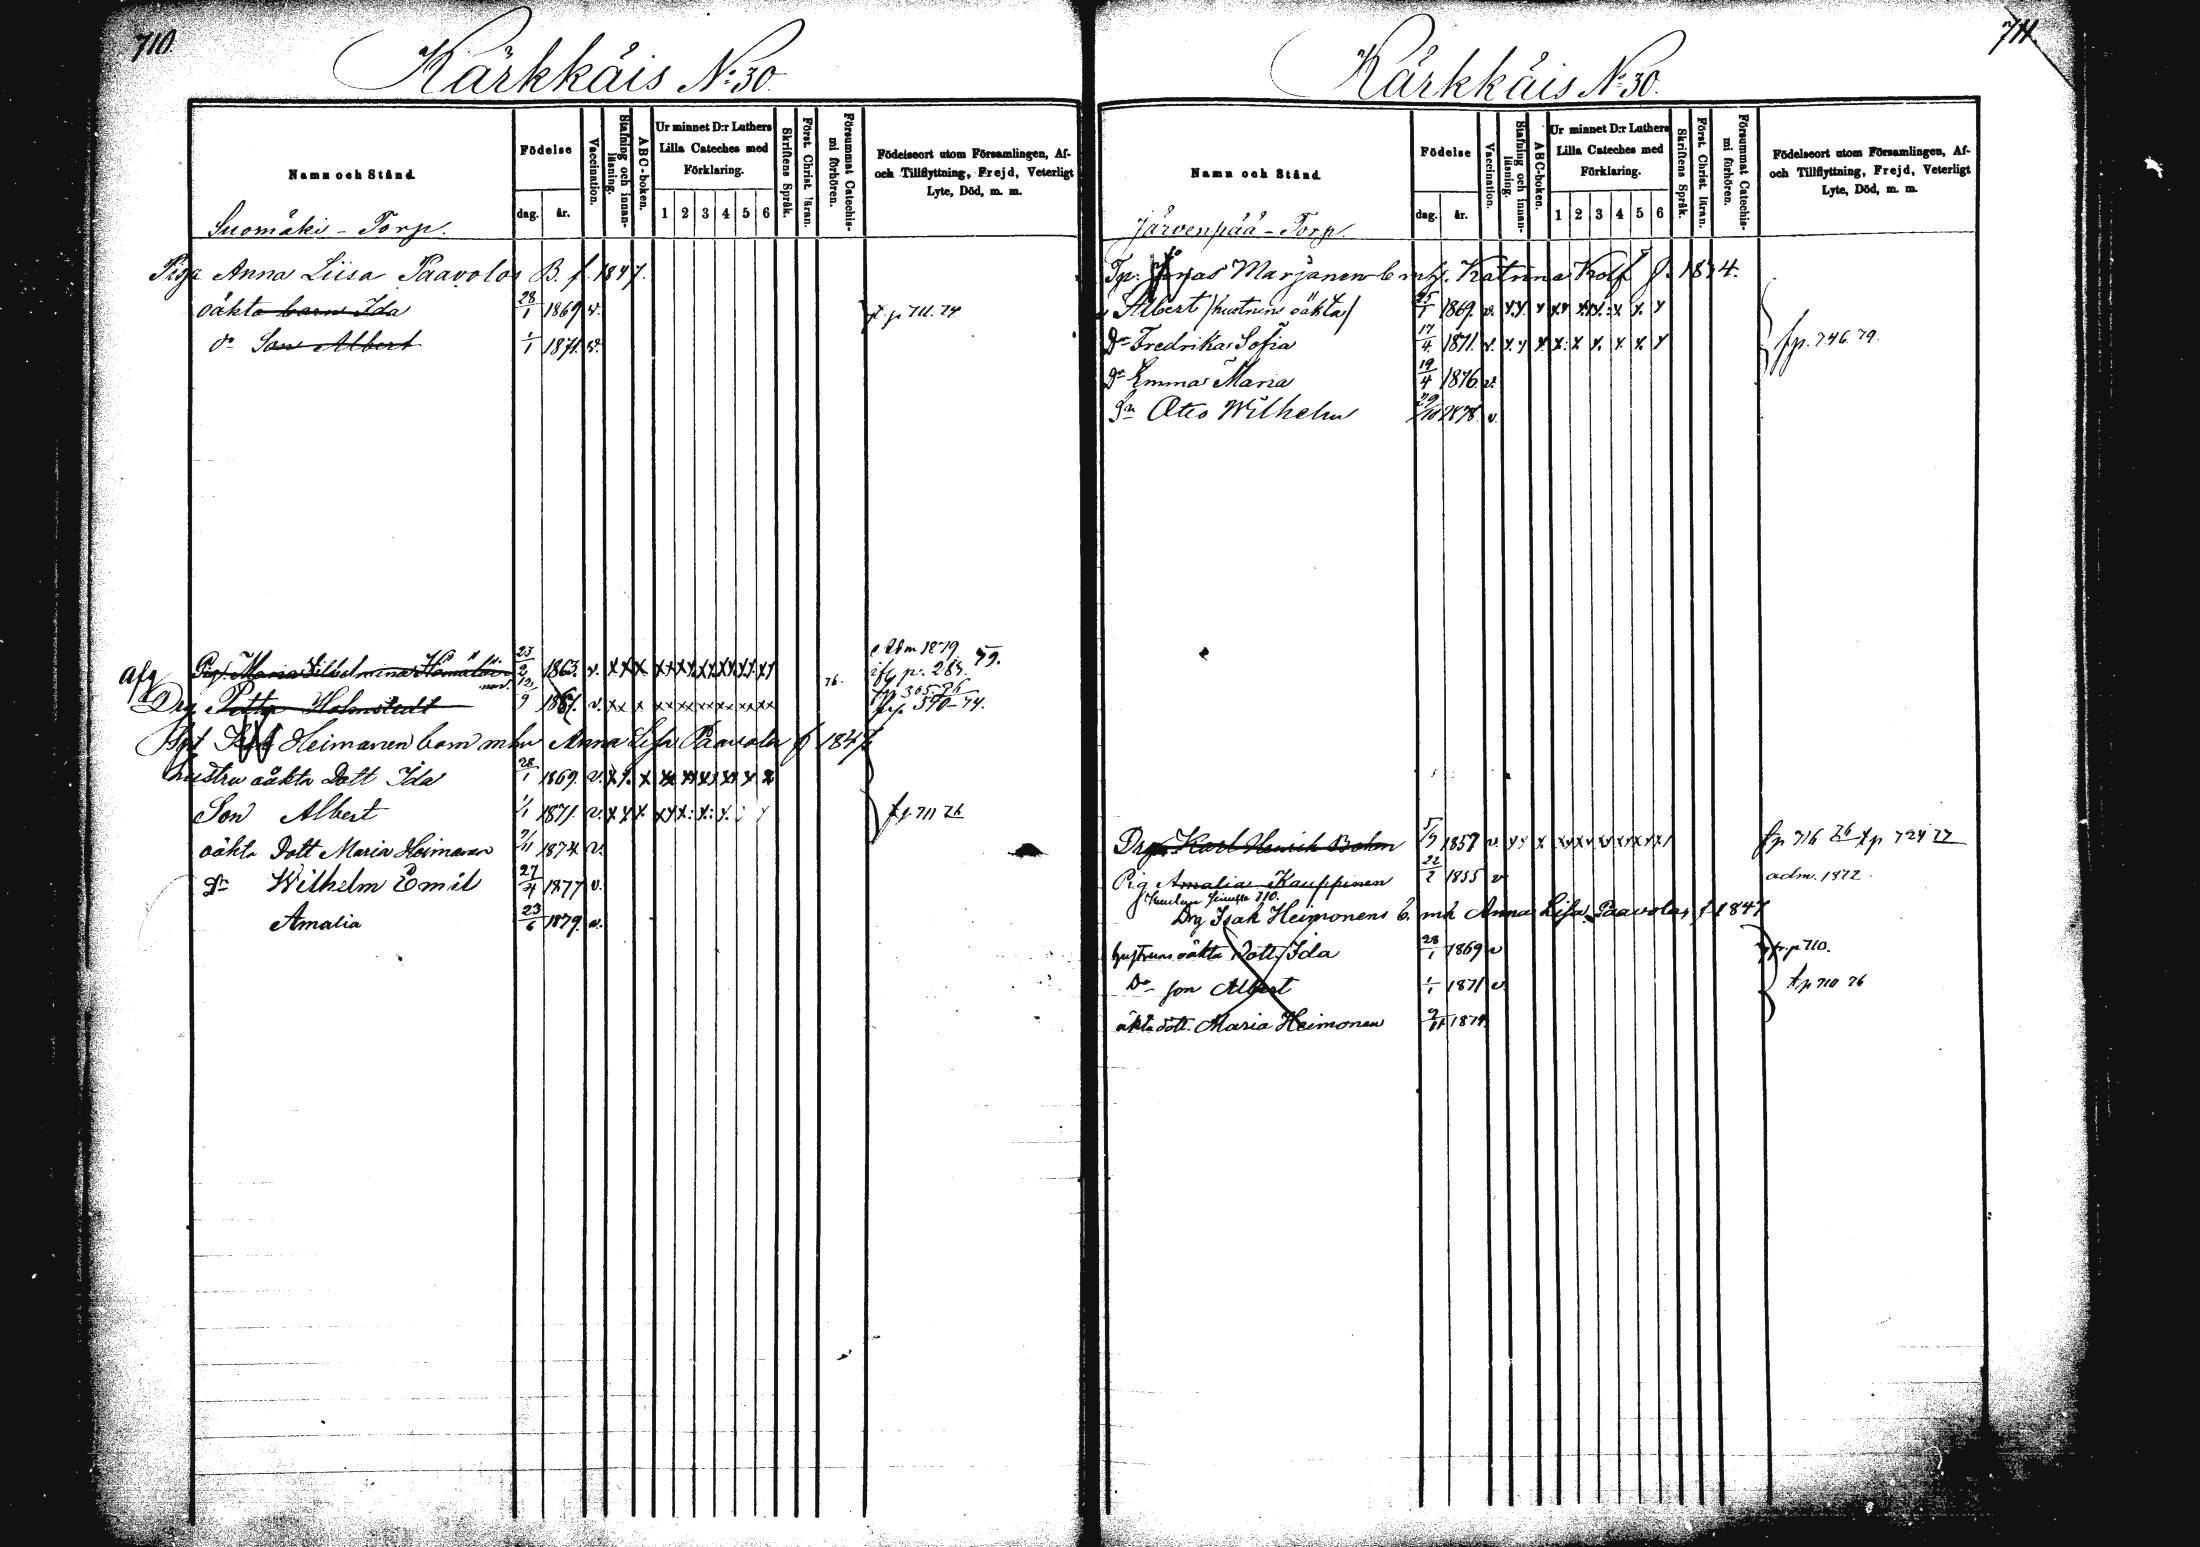 710.
Kärkkäis No: 30.
Namn och Stånd.
Födelse
dag.
år.
Vaccination.
Stafning och innan-läsning.
ABC-boken.
Ur minnet D:r Luthers
Lilla Cateches med
Förklaring.
1 2 3 4 5 6
Skriftens Språk.
Först. Christ. läran.
Försummat Catechis-mi förhören.
Födelseort utom Församlingen, Af-
och Tillflyttning, Frejd, Veterligt
Lyte, Död, m. m.
Suomäki - Torp.
Piga Anna Liisa Paavolas B. f. 1847.
oäkta barn Ida 28/1 1869 v. t.p 711. 74
do Son Albert 1/1 1871. v.
Pig. Maria Vilhelmina 23/2 1863. v. x x x x x x x x x x x Adm 1879 p. 285. 79.
Drg Petter Holmstedt 9 1867. v. x x x x x x x x x x 76. fp 365. 76 fr.p. 590-74.
Heimonen barn m hu Anna Lisa Paavola f 1847
hustru oäkta Dott Ida 28/1 1869. v. x x. x x x x x x x
Son Albert 1/1 1871. v. x x x. x x x: x: x. fp 711 76
oäkta Dott Maria Heimonen 2/11 1874 v.
Sn Wilhelm Emil 27/4 1877 v.
Amalia 23/6 1879. v.
711.
Kärkkäis No: 30.
Namn och Stånd.
Födelse
dag.
år.
Vaccination.
Stafning och innan-läsning.
ABC-boken.
Ur minnet D:r Luthers
Lilla Cateches med
Förklaring.
1 2 3 4 5 6
Skriftens Språk.
Först. Christ. läran.
Försummat Catechis-mi förhören.
Födelseort utom Församlingen, Af-
och Tillflyttning, Frejd, Veterligt
Lyte, Död, m. m.
Järvenpää - Torp.
Tp. Jonas Marjanen b mh. Katrina Kolf f. 1874.
Albert /hustruns oäkta/ 25/1 1869. v. x.x x x x x x x x
Dr Fredrika Sofia 17/4. 1871. v. x. x x x: x x. x. x. x fp. 746. 79.
Dr Emma Maria 19/4 1876. v.
Sn Otto Wilhelm 29/10 1878. v.
Drg Karl Henrik Bohm 5/9 1857 v. x x x x x x x x x fp 716 76 tp 724 77
Pig Amalia Kauppinen 22/2 1855 v adm. 1872.
710.
Drg Isak Heimonens b. mh Anna Lisa Paavolas f 1847
hustruns oäkta Dott. Ida 28/1 1869 v fr.p 710.
Do son Albert 1/1 1871 v. t.p 710 76
äkta dott. Maria Heimonen 2/11 1874.